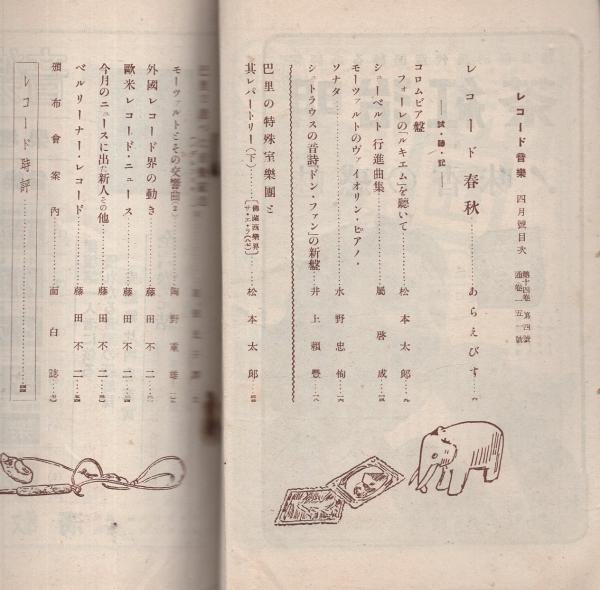 レコード音樂 四月號目次
第十四卷 第四號
通卷一五一號
レコード春秋……あらえびす
――試・聽・記――
コロムビア盤
フォーレの「ルキエム」を聽いて……松本太郎
シューベルト 行進曲集……屬啓成
モーツァルトのヴァイオリン・ピアノ・
ソナタ……水野忠恂
シュトラウスの音詩「ドン・ファン」の新盤……井上賴豐
巴里の特殊室樂團と
其レパートリー(下)……松本太郎
モーツァルトとその交響曲
外國レコード界の動き……藤田不二
歐米レコード・ニュース……藤田不二
今月のニュースに出た新人その他……藤田不二
ベルリーナー・レコード……藤田不二
頒布會案內……面白誌
レコード時評